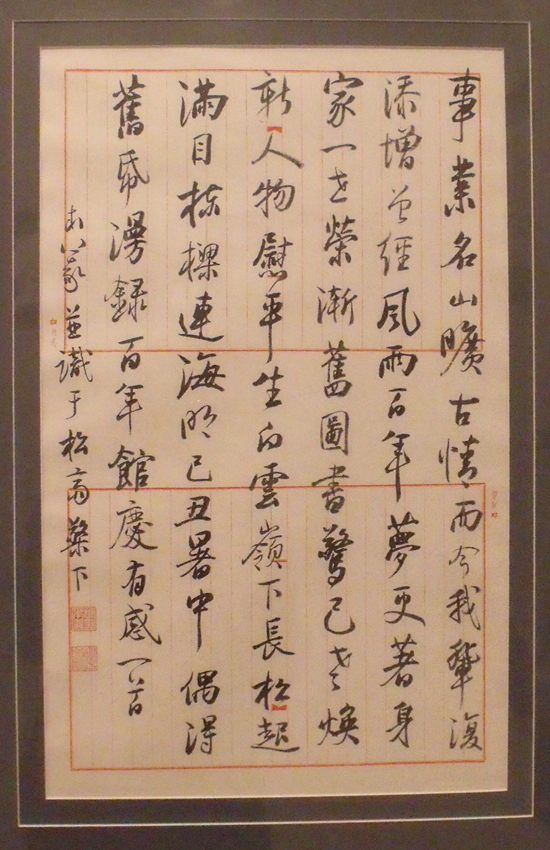 事業名山曠古情而今我輩復
添增曾經風雨百年夢更著身
家一世榮漸舊圖書驚已老煥
新人物慰平生白雲嶺下長松起
滿目棟樑連海明己丑暑中偶得
舊帋漫錄百年館慶有感一首
並識于松斋檠下